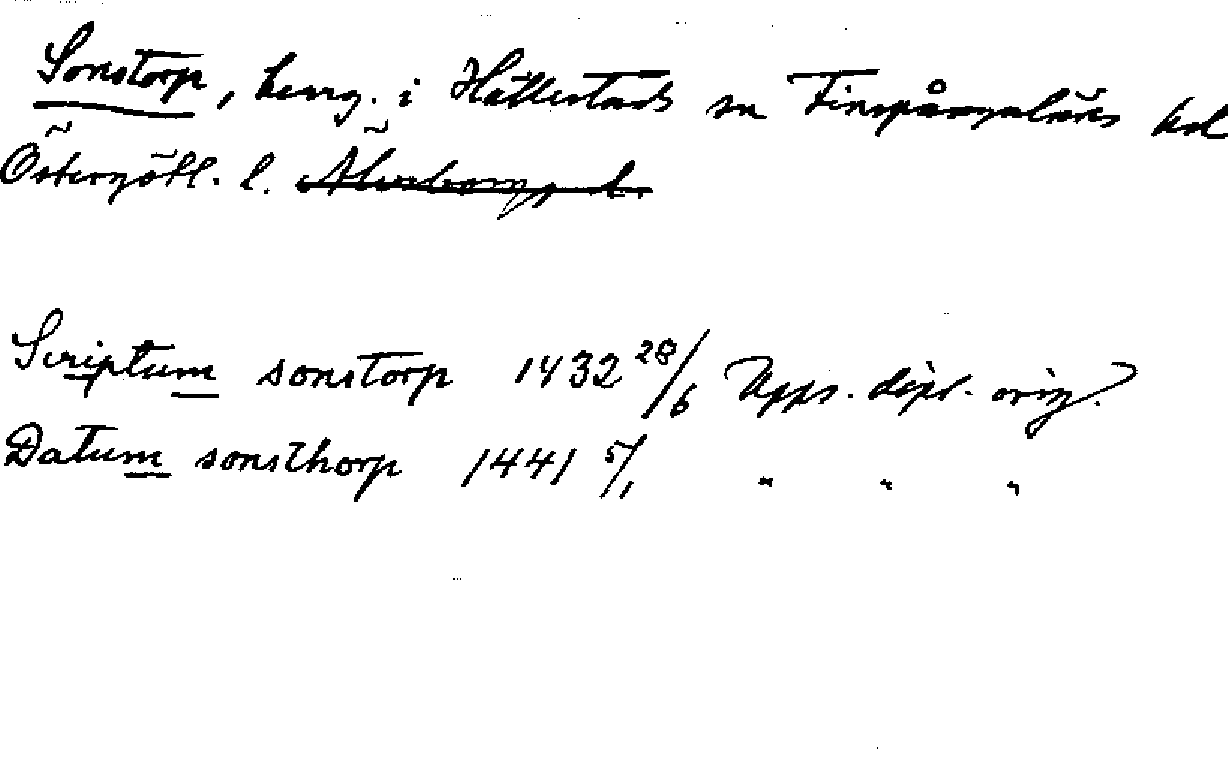 Sonstorp, herrg. i Hällestads sn Finspångaläns hd
Östergötl. l. Älvsborgs l.
Scriptum sonstorp 1432 28/6 Upps. dipl. orig.
Datum sonsthorp 1441 5/1 " " "